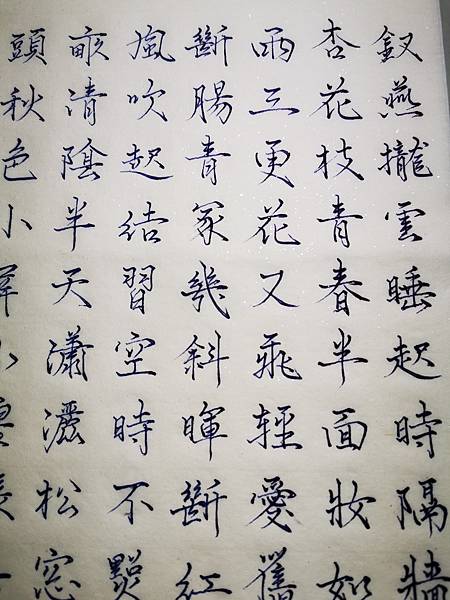 釵燕攏雲睡起時隔牆
杏花枝青春半面妝如
雨三更花又飛輕愛
斷腸青冢幾斜暉斷紅
風吹起結習空時不點
畝清陰半天瀟灑松窗
頭秋色小